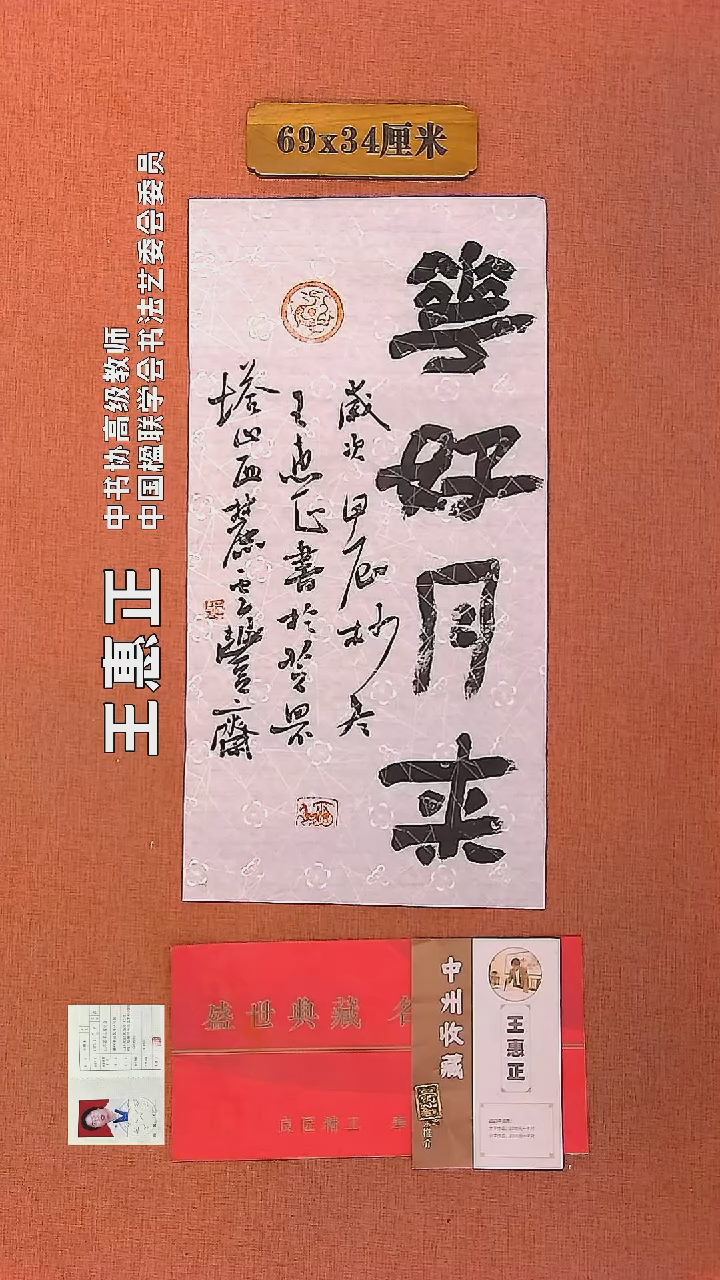 69x34厘米
中国楹联学会书法艺委会委员
中书协高级教师
王惠正
華好月来
歲次甲辰杪冬
王惠正書於翠景
塔山西麓雲豐齋
盛世典藏 名
中州收藏
推介
王惠正